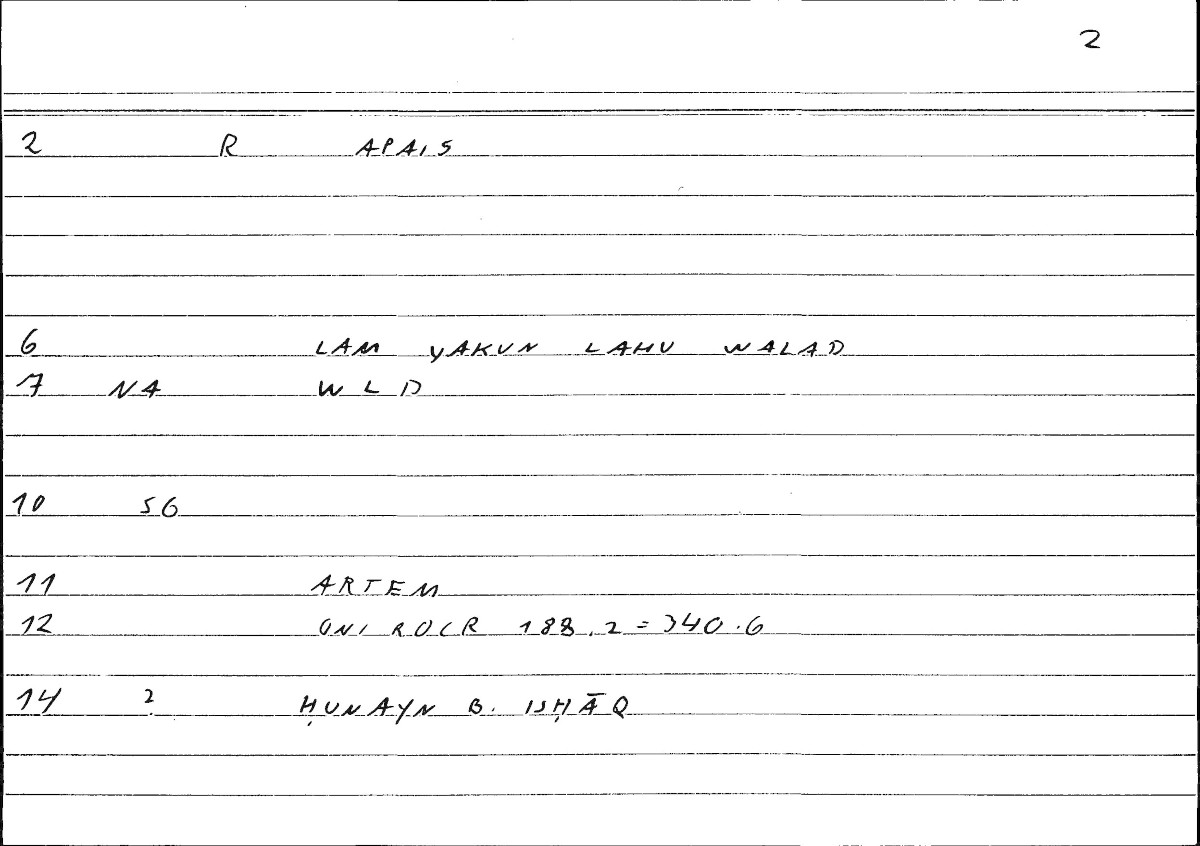 2
2 R APAIS
6 LAM YAKUN LAHU WALAD
7 NA WLD
10 SG
11 ARTEM
12 ONIROCR 188.2 = 340.6
14 2 ḤUNAYN B. ISḤĀQ